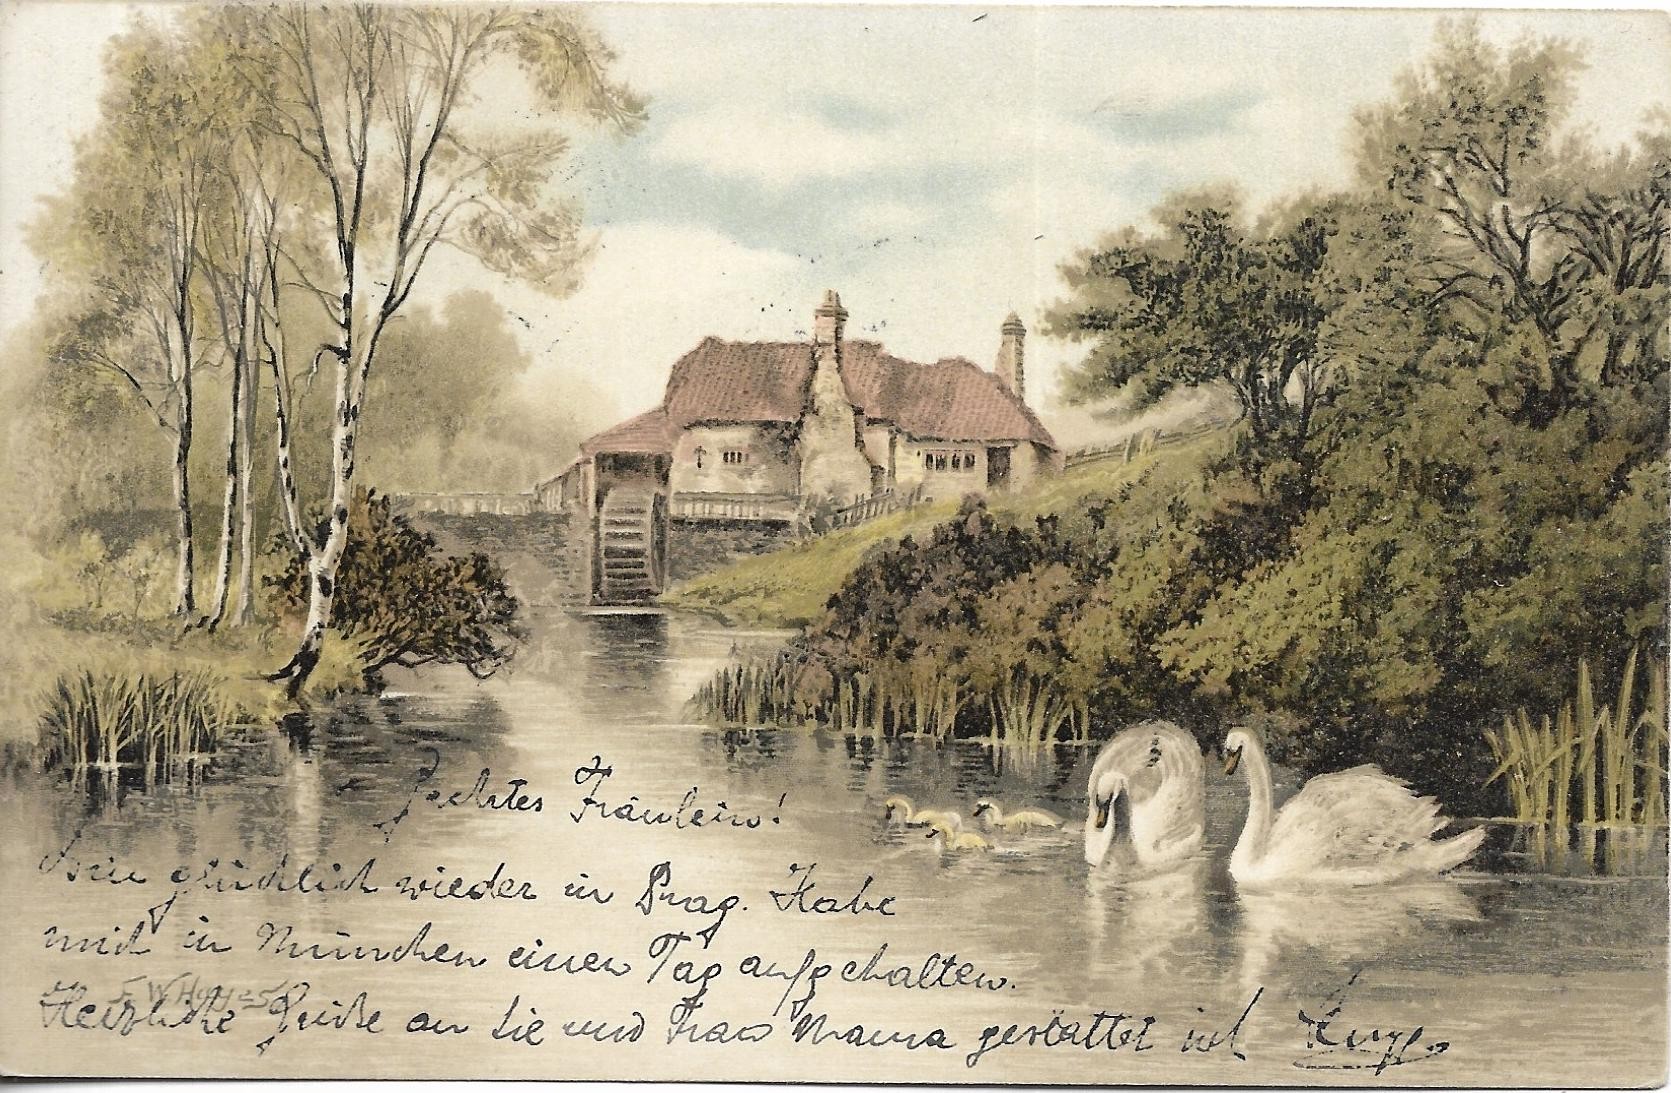 Geehrtes Fräulein!
Bin glücklich wieder in Prag. Habe
mich in München einen Tag aufgehalten.
Herzliche Grüße an Sie und Frau Mama gestattet sich